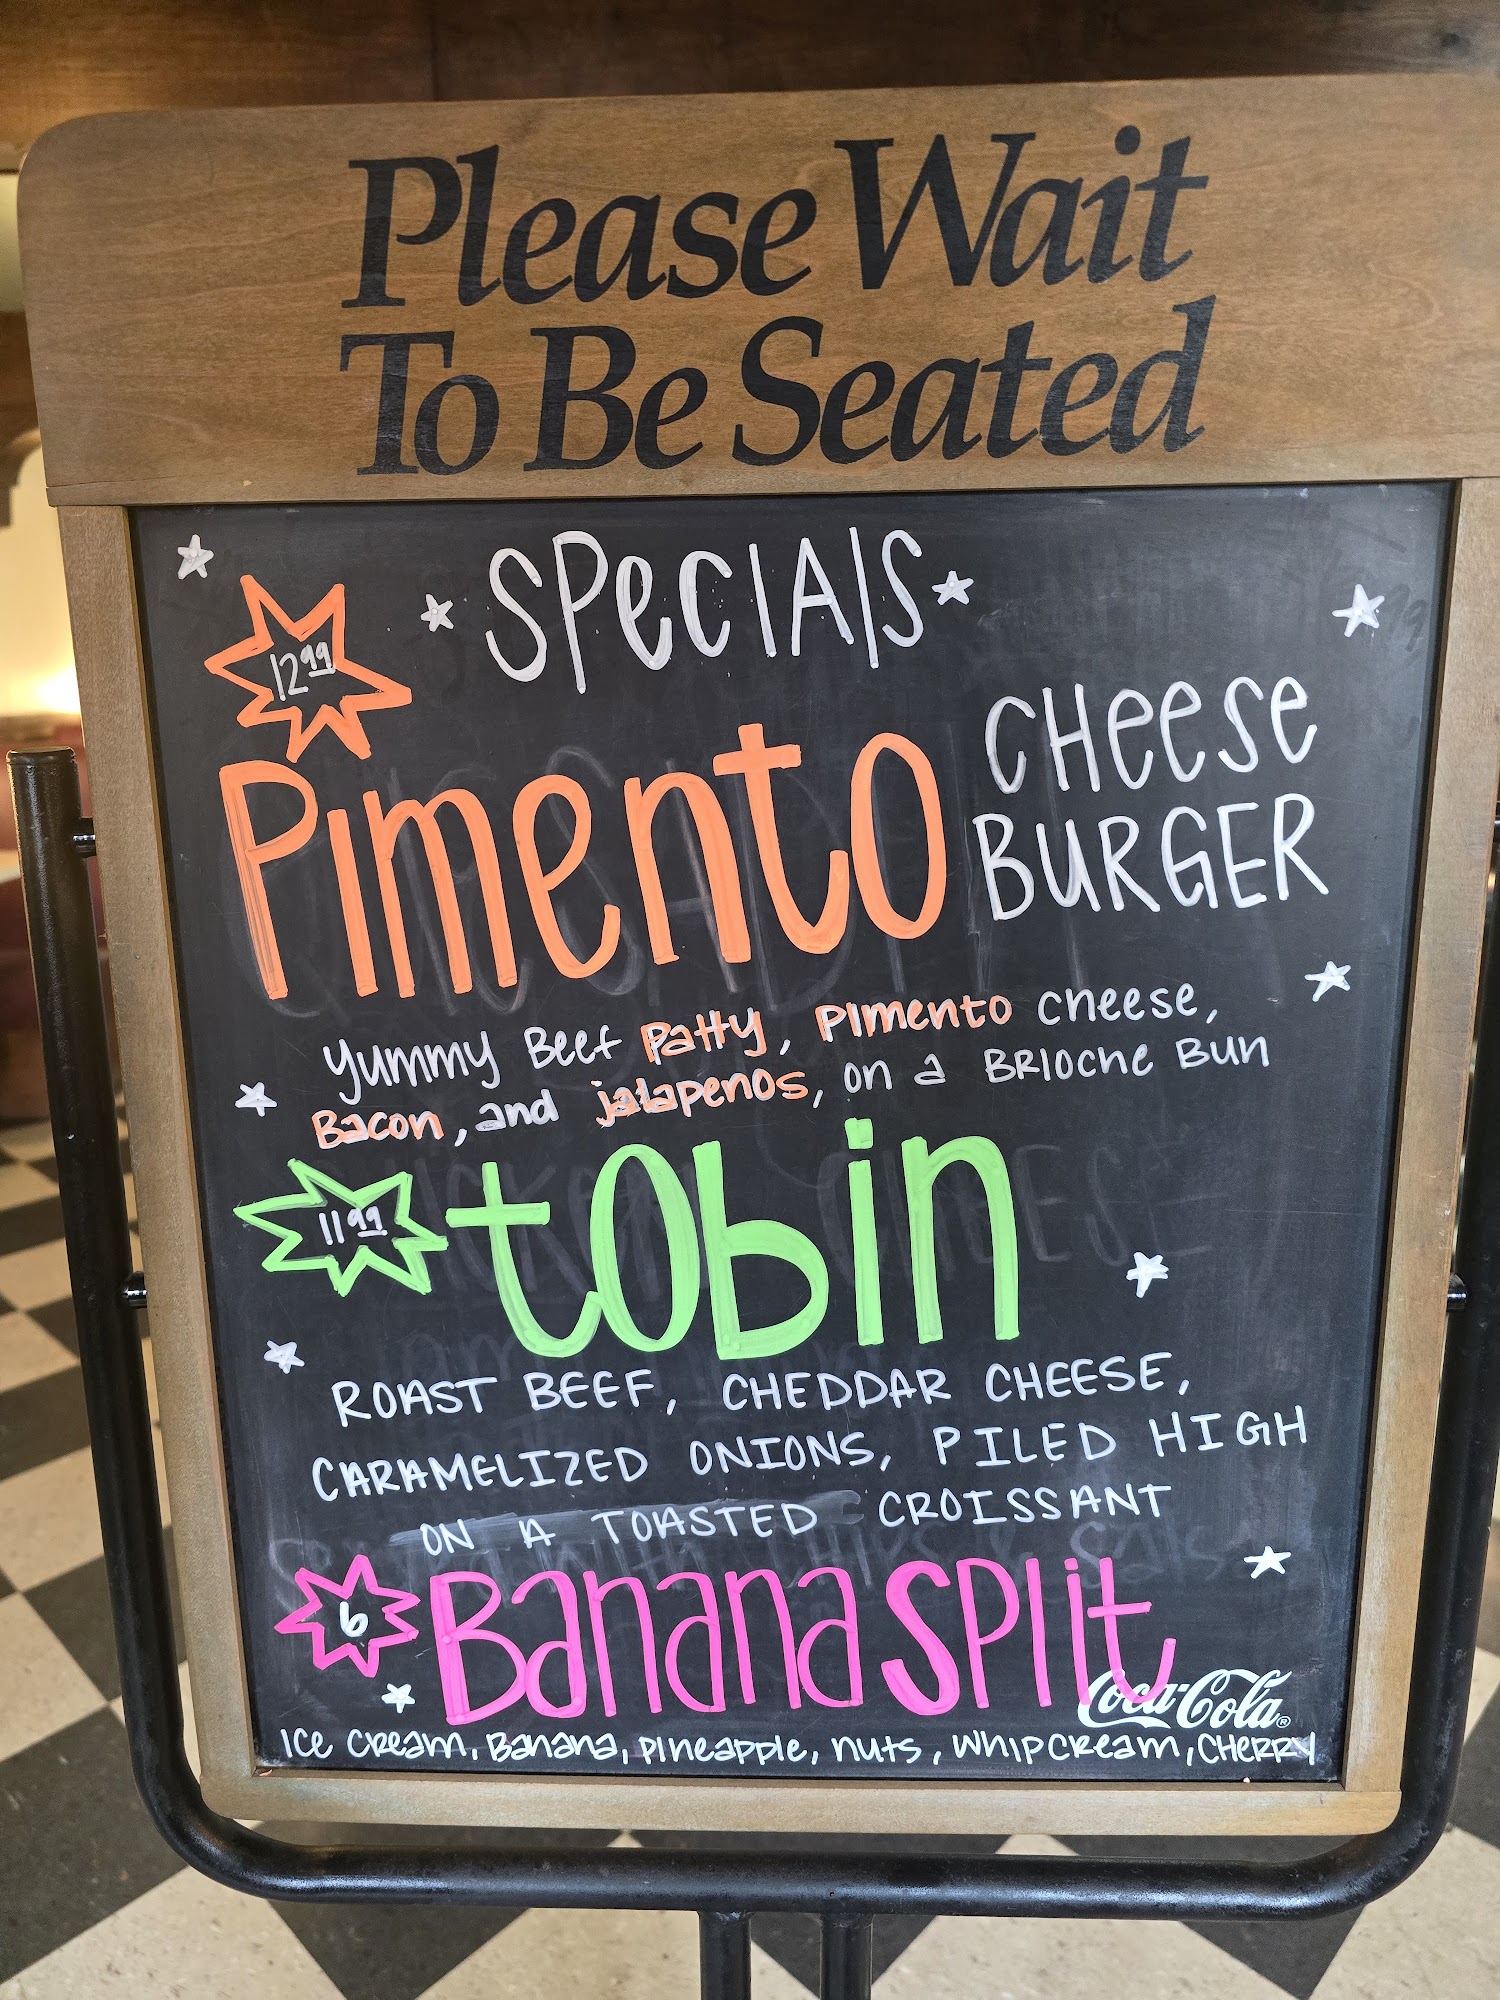 Please Wait
To Be Seated
SPeCIAlS
12.99
Pimento
CHeese
BURGER
Yummy Beef Patty, Pimento cheese,
Bacon, and jalapenos, on a Brioche Bun
11.99
tobin
ROAST BEEF, CHEDDAR CHEESE,
CARAMELIZED ONIONS, PILED HIGH
ON A TOASTED CROISSANT
6
Banana Split
Coca-Cola®
Ice Cream, Banana, pineapple, nuts, whipcream, CHERRY